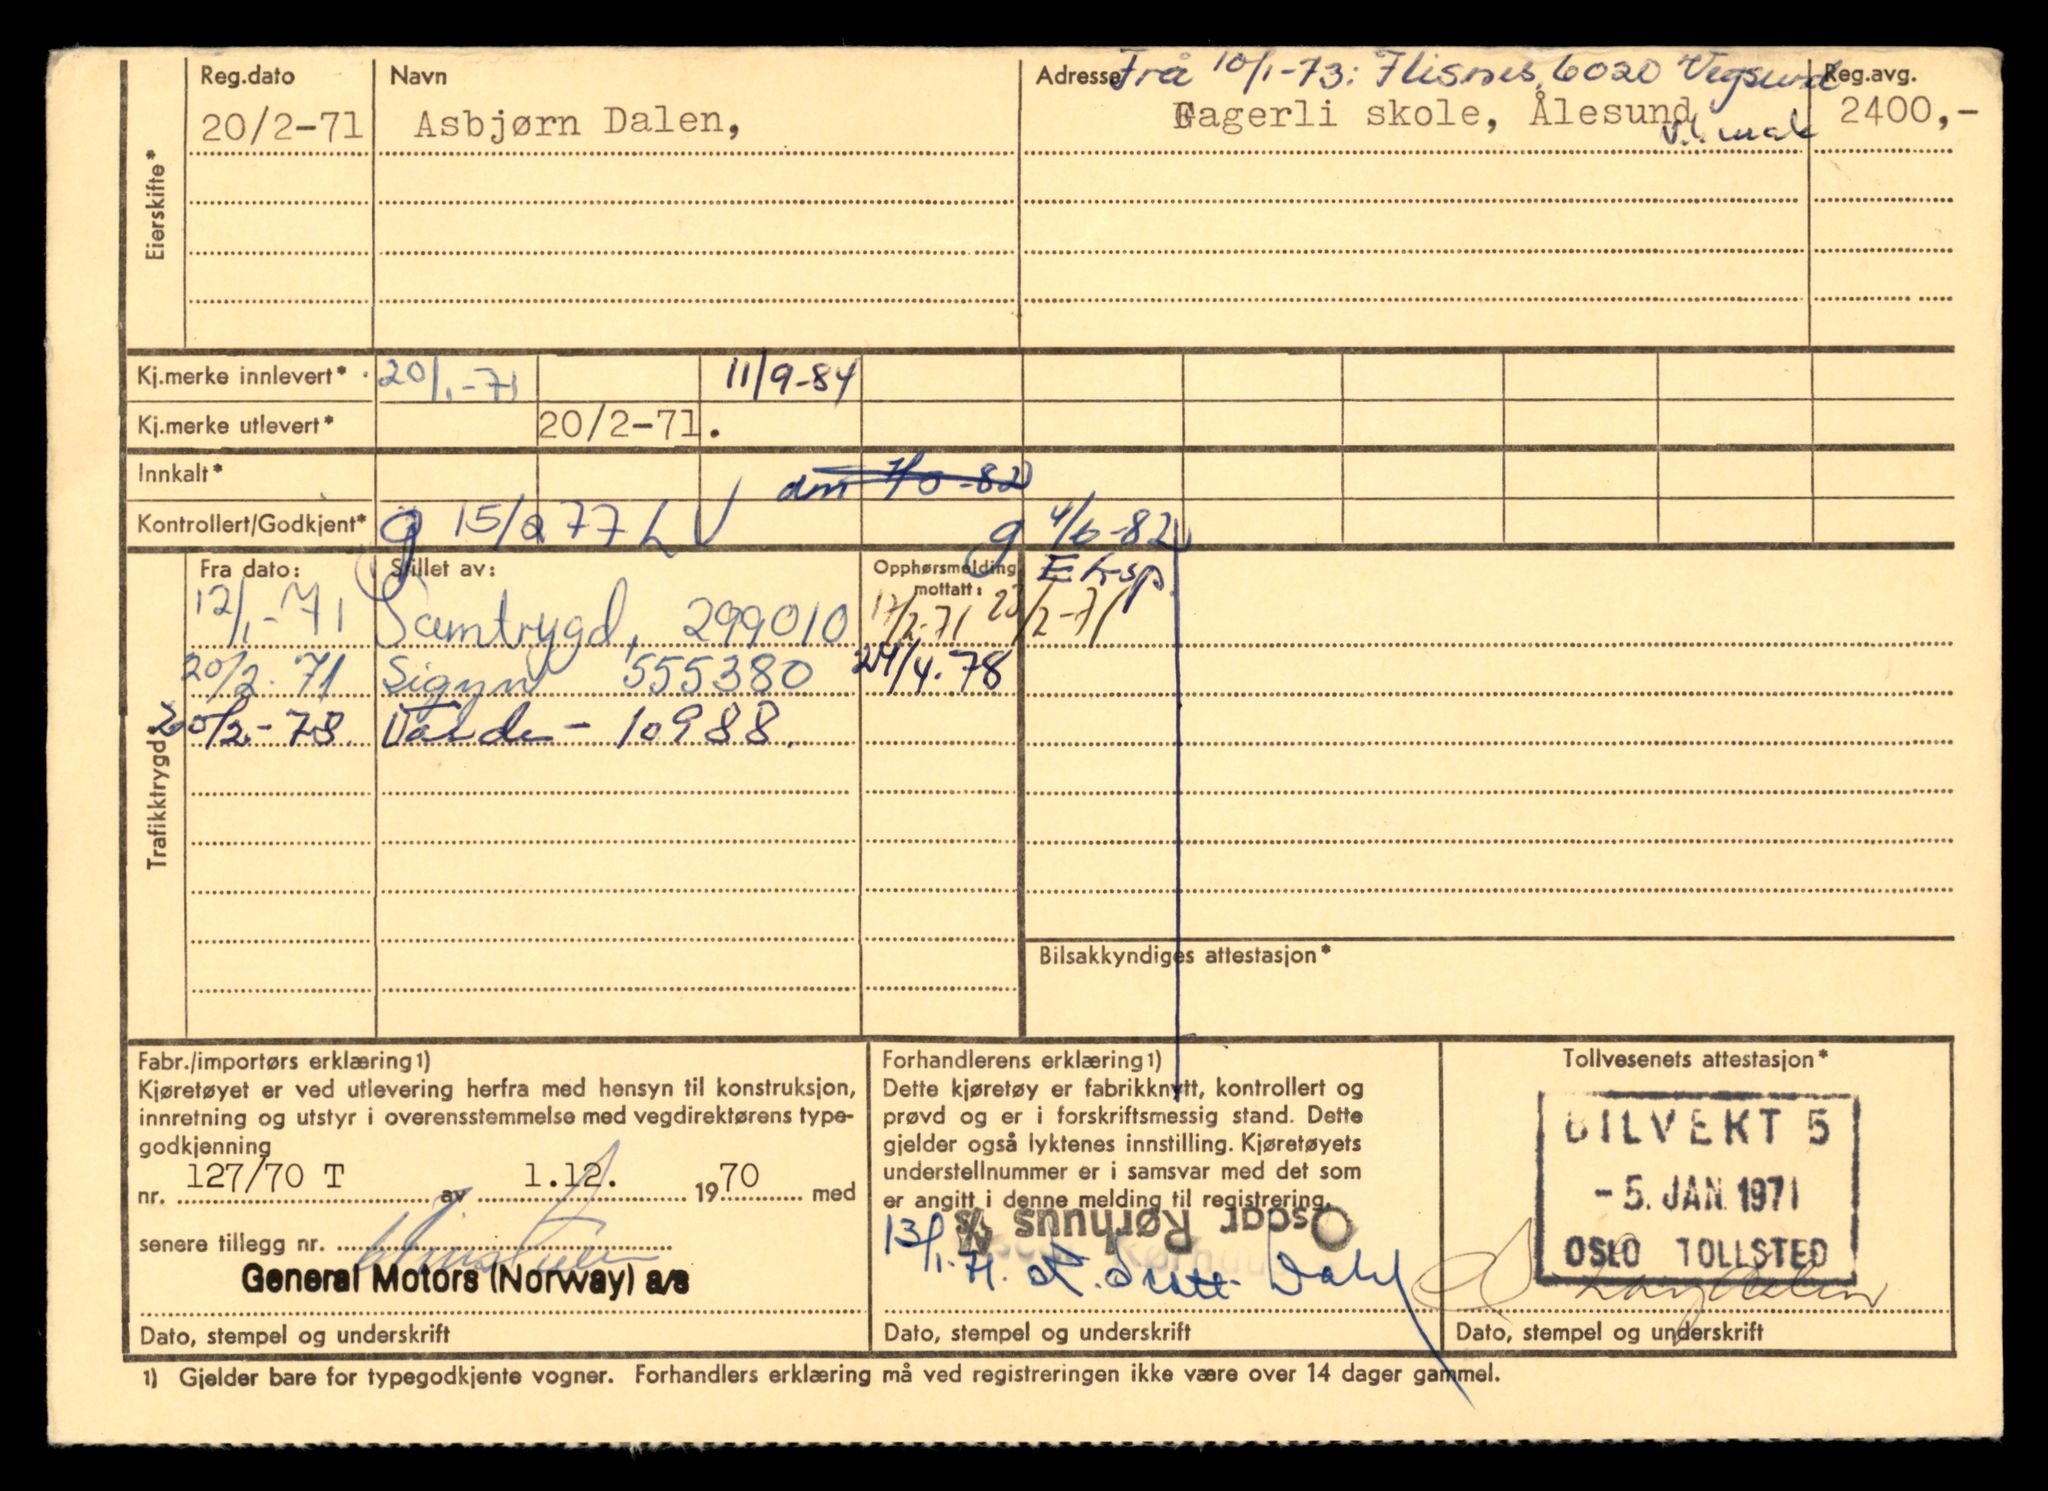 Reg.dato Navn Adresse Frå 10/1-73: Flisnes, 6020 Vegsund Reg.avg.
20/2-71 Asbjørn Dalen, Fagerli skole, Ålesund 2400,-
Eierskifte*
Kj.merke innlevert* 20/1-71 11/9-84
Kj.merke utlevert* 20/2-71.
Innkalt* 7/6-82
Kontrollert/Godkjent* g 15/2 77 g 4/6-82
Fra dato: Stillet av: Opphørsmelding mottatt: Eksp.
12/1-71 Samtrygd, 299010 17/2-71 20/2-71
20/2-71 Sigyn 555380 24/4-78
20/2-78 10988.
Trafikktrygd*
Bilsakkyndiges attestasjon*
Fabr./importørs erklæring 1)
Kjøretøyet er ved utlevering herfra med hensyn til konstruksjon,
innretning og utstyr i overensstemmelse med vegdirektørens type-
godkjenning
nr. 127/70 T av 1.12. 1970 med
senere tillegg nr.
General Motors (Norway) a/s
Dato, stempel og underskrift
Forhandlerens erklæring 1)
Dette kjøretøy er fabrikknytt, kontrollert og
prøvd og er i forskriftsmessig stand. Dette
gjelder også lyktenes innstilling. Kjøretøyets
understellnummer er i samsvar med det som
er angitt i denne melding til registrering.
Oscar Rørhus A/S
13/1-71. Dahl
Dato, stempel og underskrift
Tollvesenets attestasjon*
BILVEKT 5
- 5. JAN. 1971
OSLO TOLLSTED
Dato, stempel og underskrift
1) Gjelder bare for typegodkjente vogner. Forhandlers erklæring må ved registreringen ikke være over 14 dager gammel.